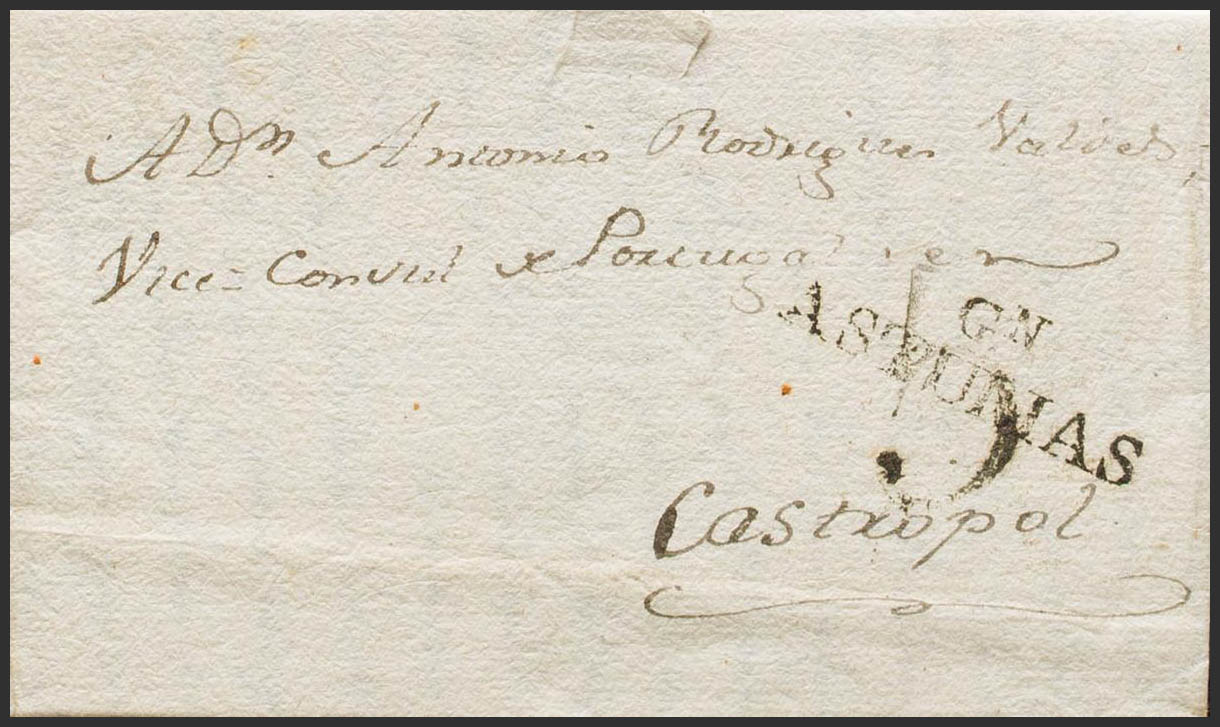 A Dn. Antonio Rodrigues Valdes,
Vice= Consul de Portugal en
GN
ASTURIAS
5
Castropol